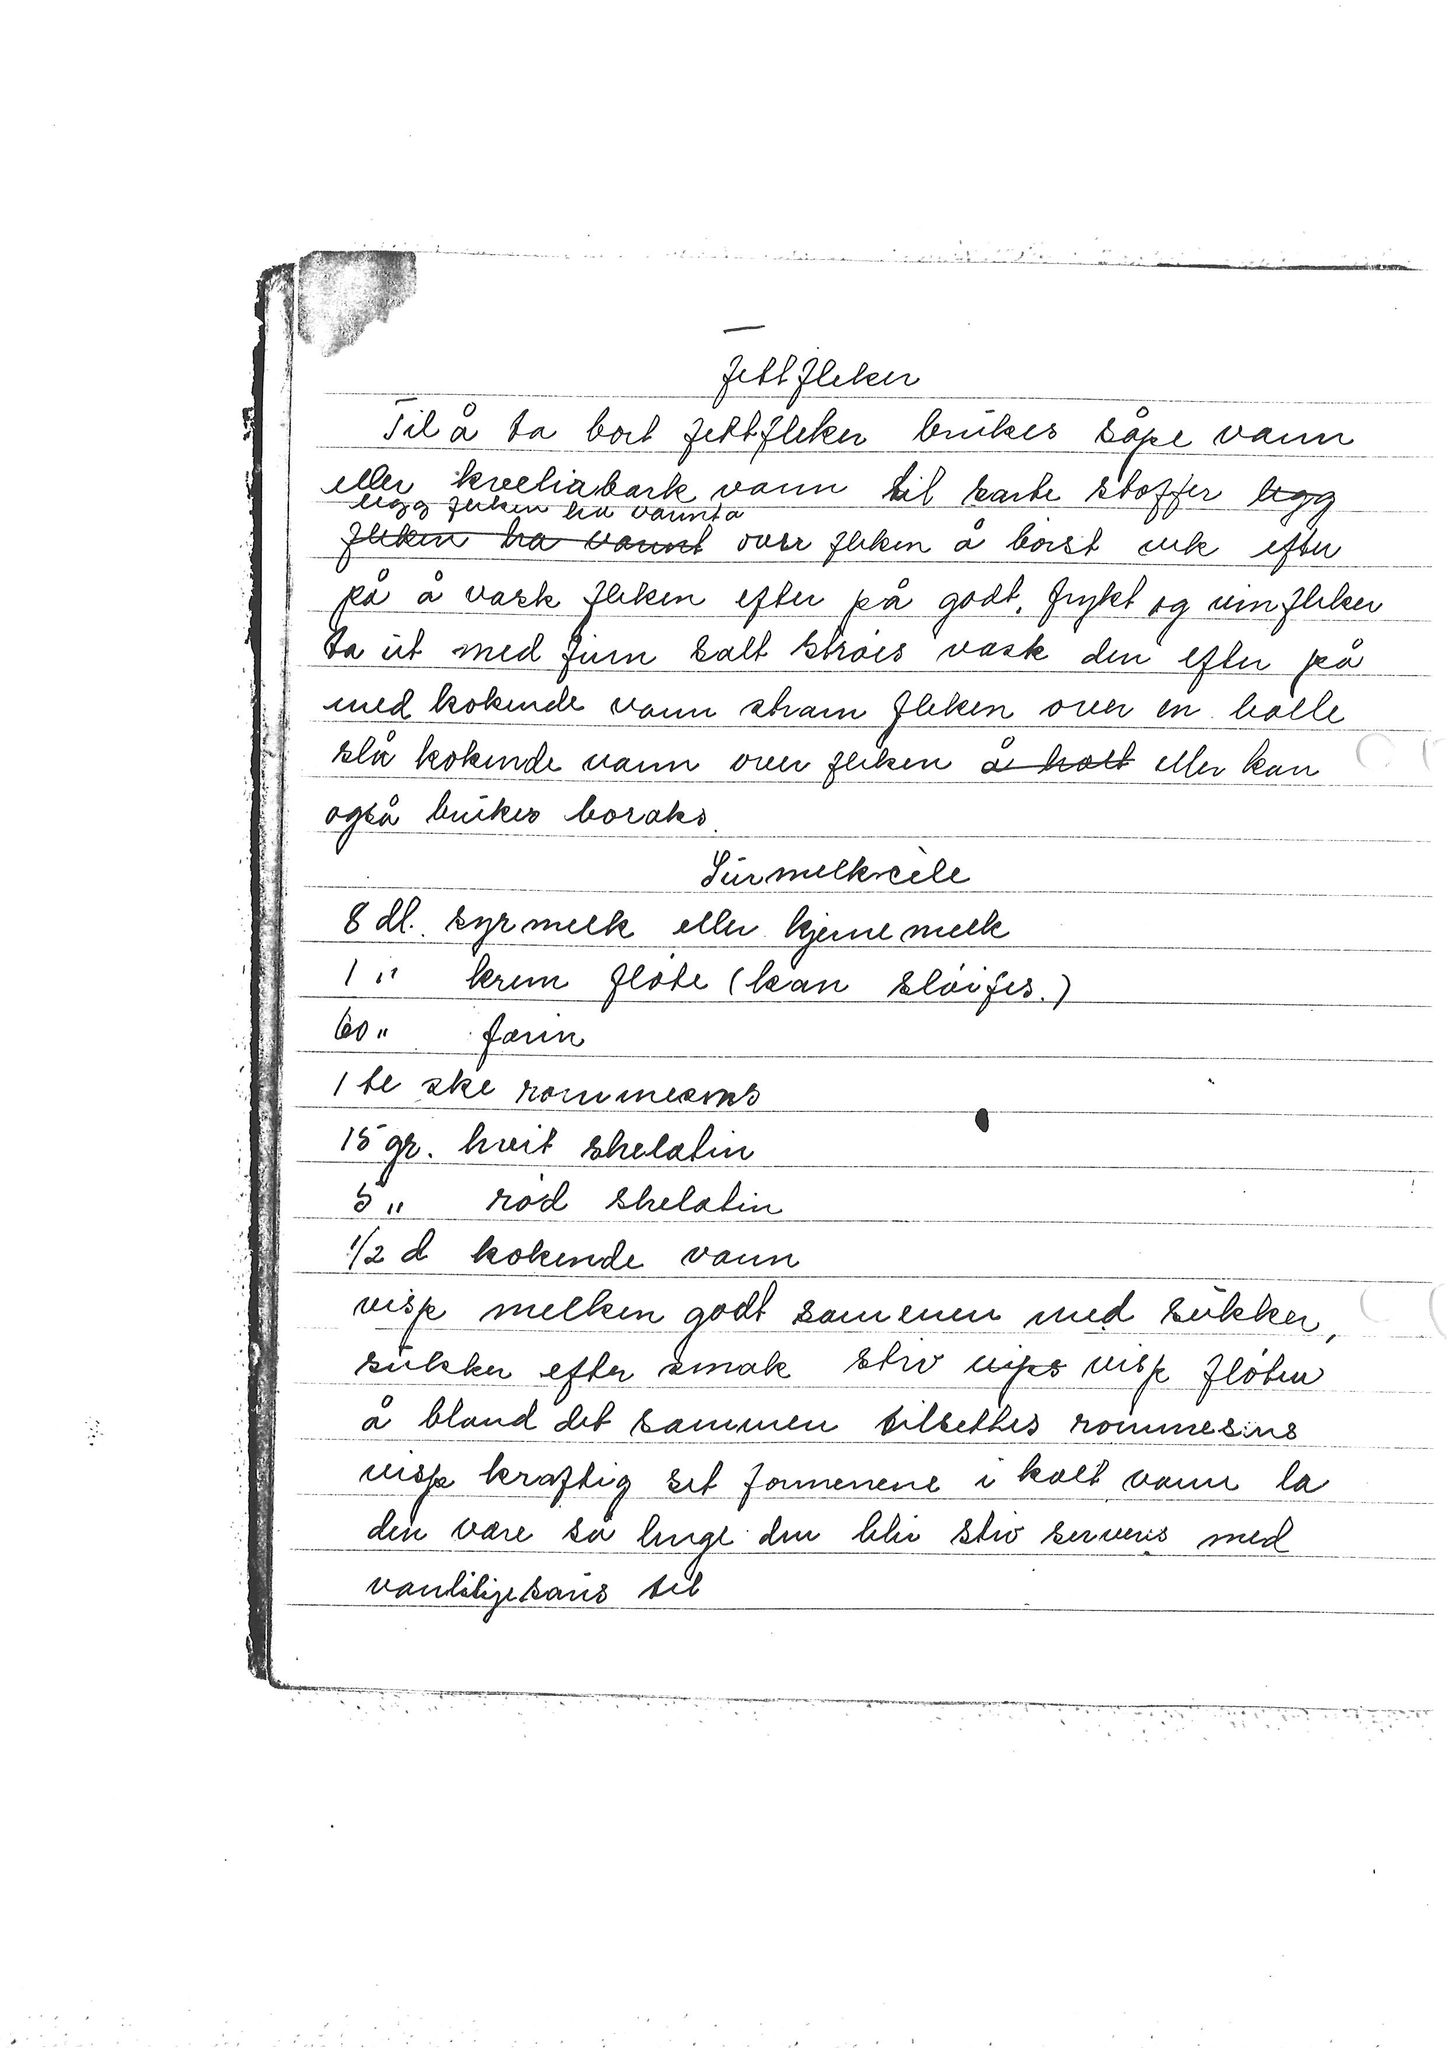 Fettfleker
Til å ta bort fettfleker brukes såpe vann
eller kveliabark vann til sarte stoffer legg
legg fleken ha vannta
fleken ha vannt over fleken å børst vek efter
på å vask fleken efter på godt, frykt og vin fleker
ta ut med fiin salt strøes vask den efter på
med kokende vann stram fleken over en bolle
slå kokende vann over fleken å holt eller kan
også brukes boraks.
Surmelksèle
8 dl. syrmelk eller kjernemelk
1 " krem fløte (kan sløifes.)
60 " farin
1 te ske rommesens
15 gr. hvit shelatin
5 " rød shelatin
1/2 d kokende vann
visp melken godt sammen med sukker,
sukker efter smak stiv vips visp fløten
å bland det sammen tilsettes rommesens
visp kraftig set formenene i kalt vann la
den være så lenge den blir stiv serveres med
vanliljesaus til